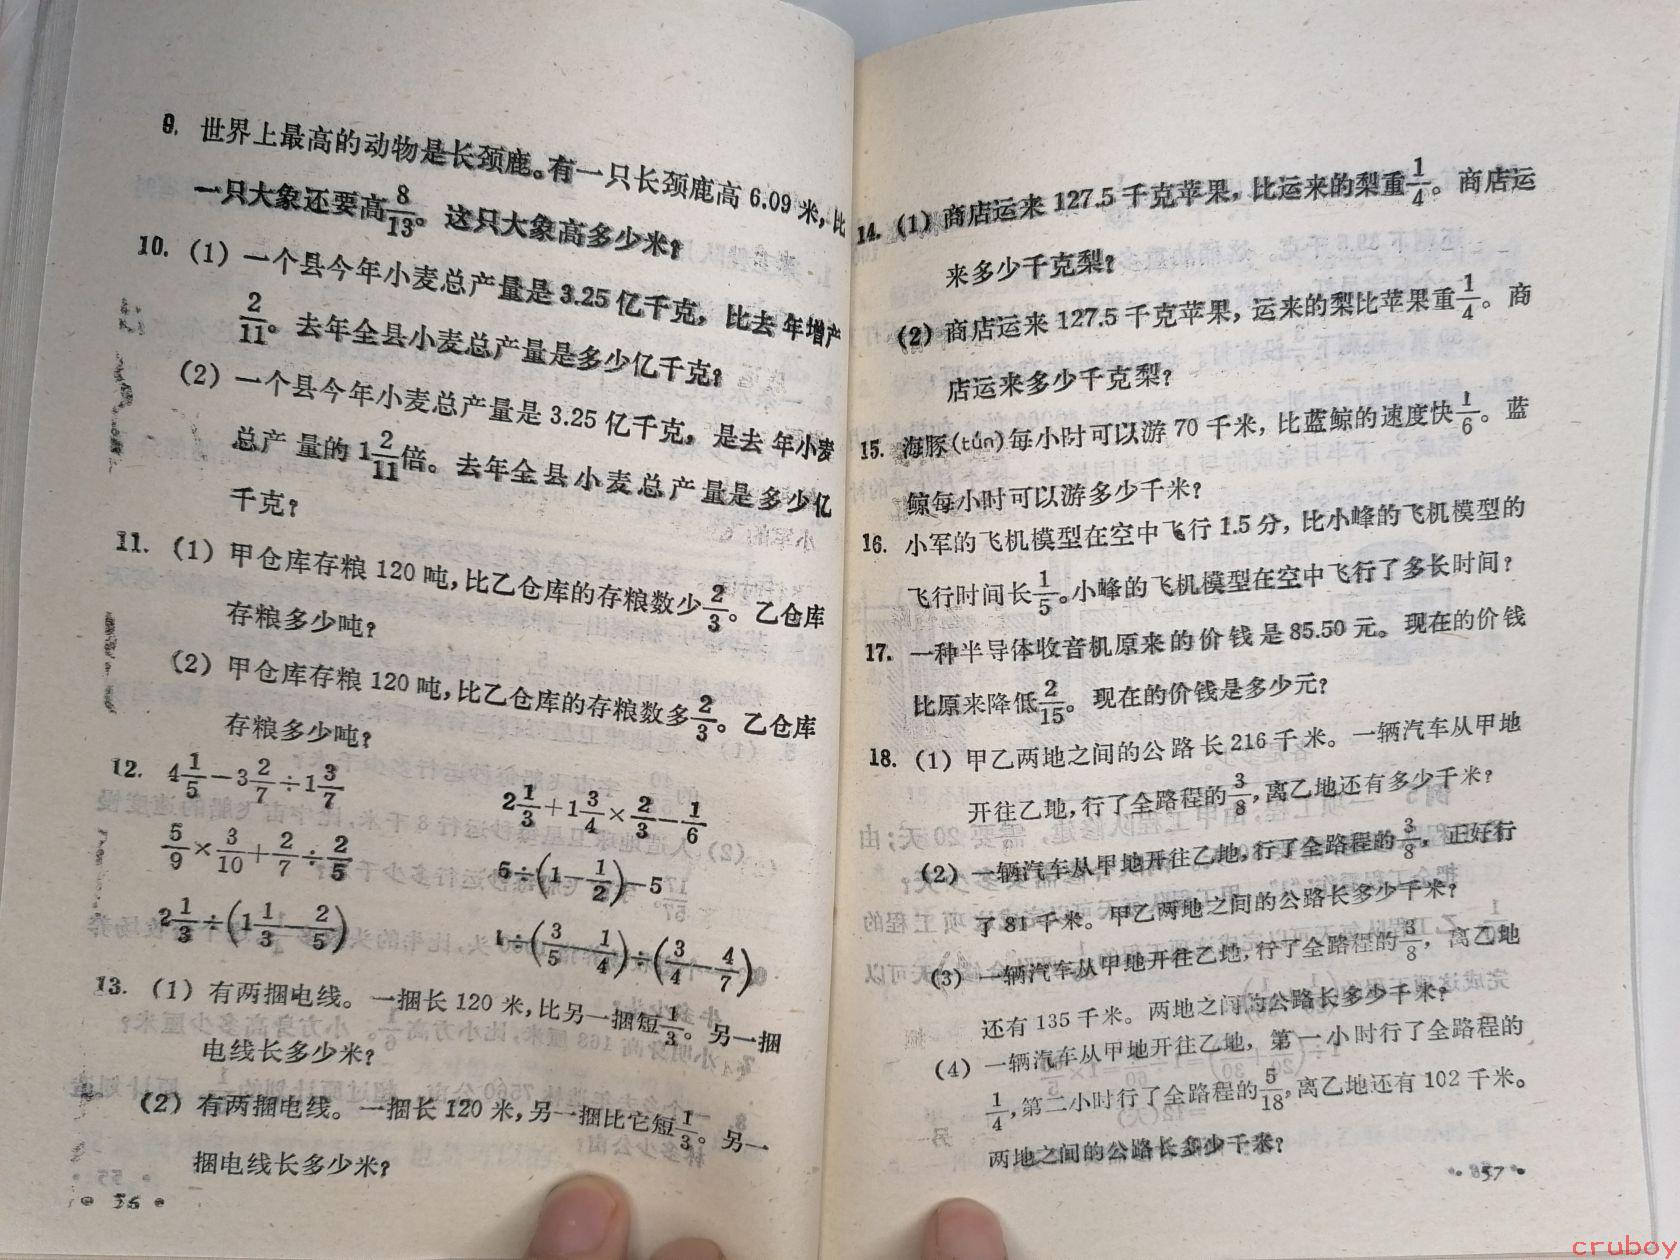 9. 世界上最高的动物是长颈鹿。有一只长颈鹿高 6.09 米，比
一只大象还要高8/13。这只大象高多少米？
10. （1）一个县今年小麦总产量是 3.25 亿千克，比去年增产
2/11。去年全县小麦总产量是多少亿千克？
（2）一个县今年小麦总产量是 3.25 亿千克，是去年小麦
总产量的 1 2/11倍。去年全县小麦总产量是多少亿
千克？
11. （1）甲仓库存粮 120 吨，比乙仓库的存粮数少2/3。乙仓库
存粮多少吨？
（2）甲仓库存粮 120 吨，比乙仓库的存粮数多2/3。乙仓库
存粮多少吨？
12. 4 1/5－3 2/7÷1 3/7 2 1/3＋1 3/4×2/3－1/6
5/9×3/10＋2/7÷2/5 5÷(1－1/2)－5
2 1/3÷(1 1/3－2/5) 1÷(3/5－1/4)÷(3/4－4/7)
13. （1）有两捆电线。一捆长 120 米，比另一捆短1/3。另一捆
电线长多少米？
（2）有两捆电线。一捆长 120 米，另一捆比它短1/3。另一
捆电线长多少米？
• 56 •
14. （1）商店运来 127.5 千克苹果，比运来的梨重1/4。商店运
来多少千克梨？
（2）商店运来 127.5 千克苹果，运来的梨比苹果重1/4。商
店运来多少千克梨？
15. 海豚(tún)每小时可以游 70 千米，比蓝鲸的速度快1/6。蓝
鲸每小时可以游多少千米？
16. 小军的飞机模型在空中飞行 1.5 分，比小峰的飞机模型的
飞行时间长1/5。小峰的飞机模型在空中飞行了多长时间？
17. 一种半导体收音机原来的价钱是 85.50 元。现在的价钱
比原来降低2/15。现在的价钱是多少元？
18. （1）甲乙两地之间的公路长 216 千米。一辆汽车从甲地
开往乙地，行了全路程的3/8，离乙地还有多少千米？
（2）一辆汽车从甲地开往乙地，行了全路程的3/8，正好行
了 81 千米。甲乙两地之间的公路长多少千米？
（3）一辆汽车从甲地开往乙地，行了全路程的3/8，离乙地
还有 135 千米。两地之间的公路长多少千米？
（4）一辆汽车从甲地开往乙地，第一小时行了全路程的
1/4，第二小时行了全路程的5/18，离乙地还有 102 千米。
两地之间的公路长多少千米？
• 57 •
cruboy